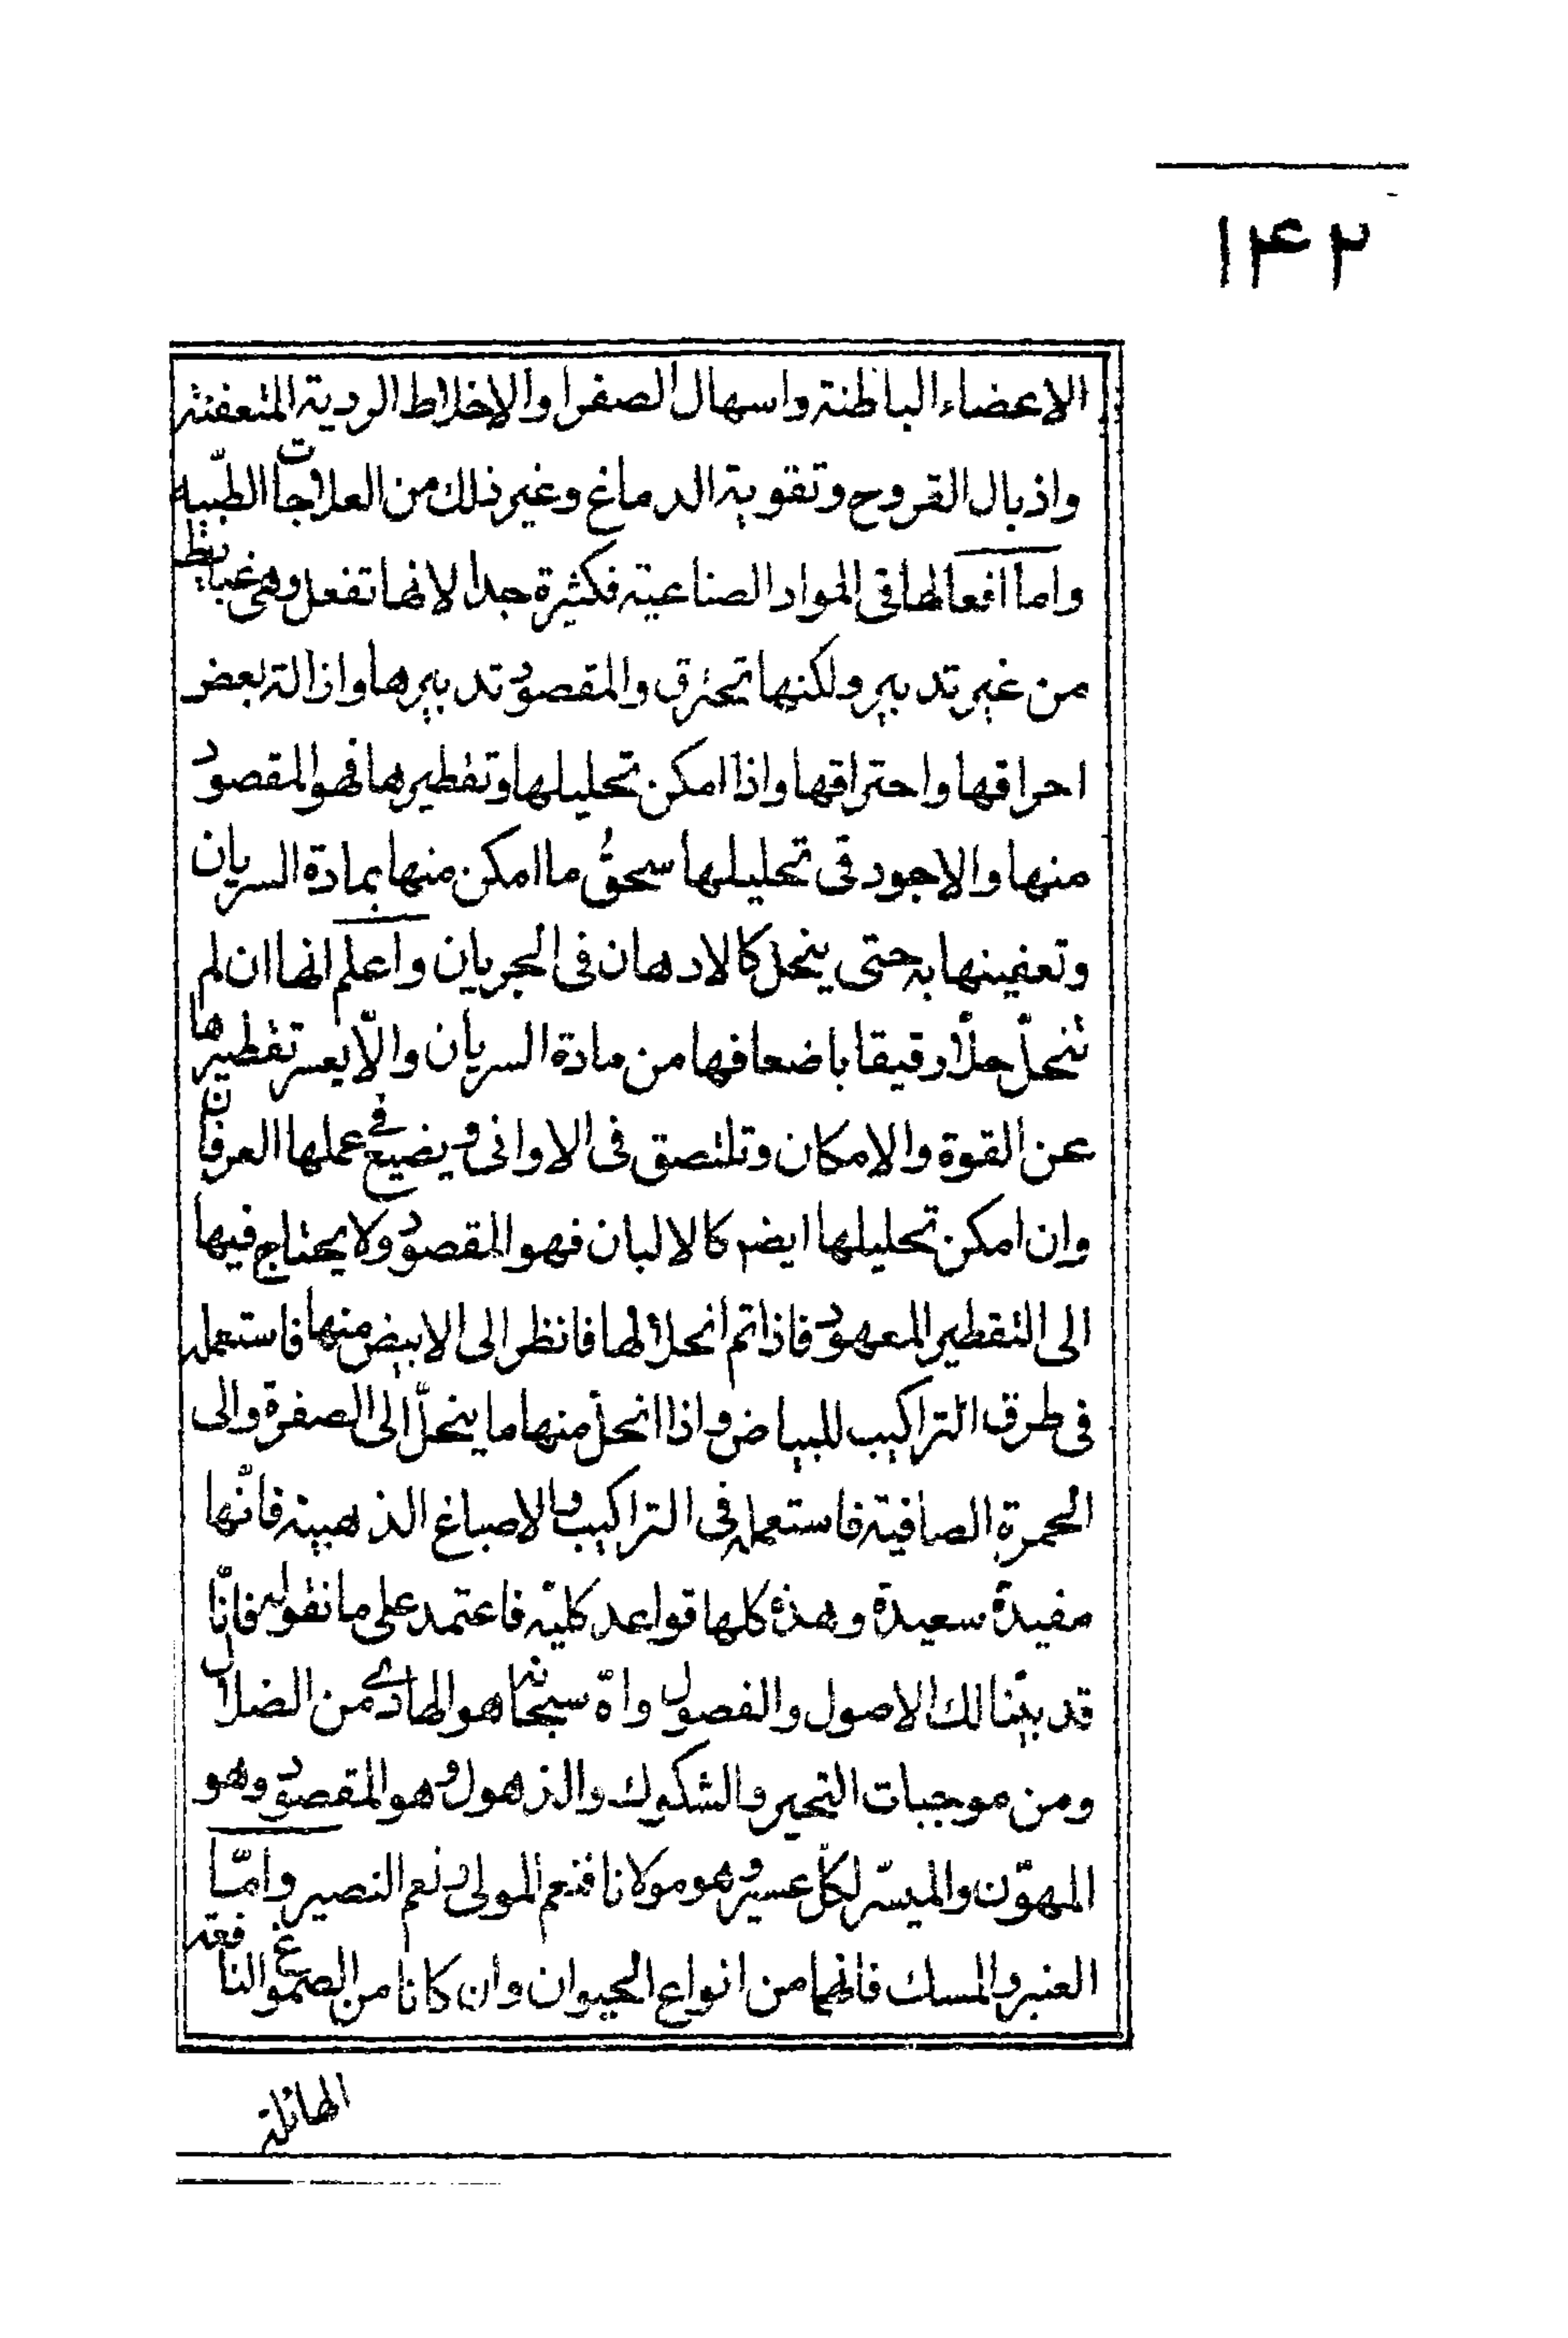 ١۴٢
الاعضاء الباطنة واسهال الصفرا والاخلاط الردية المتعفنة
واذبال القروح وتقوية الدماغ وغير ذلك من العلاجات الطبيه
واما افعالها فى المواد الصناعية فكثيرة جدا لانها تفعل وهى غبايط
من غير تدبير ولكنها تحترق والمقصود تدبيرها وازالة بعض
احراقها واحتراقها واذا امكن تحليلها وتقطيرها فهو المقصود
منها والاجود فى تحليلها سحقُ ما امكن منها بمادة السريان
وتعفينها به حتى ينحل كالادهان فى الجريان واعلم انها ان لم
تنحلّ حلّا رقيقا باضعافها من مادة السريان والّا يعسر تقطيرها
عن القوة والامكان وتلتصق فى الاوانى ويضيع فى عملها العرفان
وان امكن تحليلها ايضم كالالبان فهو المقصود ولا يحتاج فيها
الى التقطير المعهود فاذا تم انحلالها فانظر الى الابيض منها فاستعمله
فى طرق التراكيب للبياض واذا انحل منها ما ينحلّ الى الصفرة والى
الحمرة الصافية فاستعمله فى التراكيب والاصباغ الذهبية فانّها
مفيدة سعيدة وهذه كلها قواعد كليّة فاعتمد على ما نقوله فانّا
قد بيّنا لك الاصول والفصول واه سبحانه هو الهادى من الضلال
ومن موجبات التحير والشكوك والذهول وهو المقصود وهو
المهوّن والميسّر لكلّ عسير وهو مولانا فنعم المولى ونعم النصير وامّا
العنبر والمسك فانهما من انواع الحيوان وان كانا من الصموغ والنا فقد
الهائلة